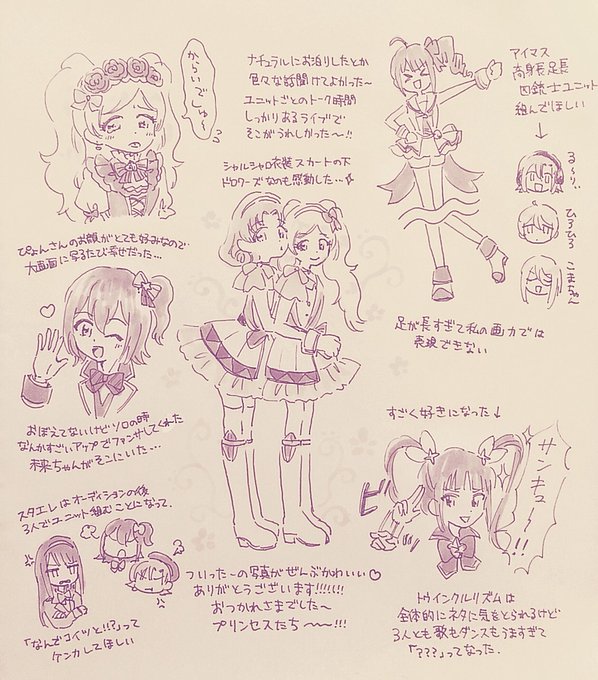 からいでしゅ〜
ナチュラルにお泊りしたとか
色々な話聞けてよかった〜
ユニットごとのトーク時間
しっかりあるライブで
そこがうれしかった〜!!
シャルシャロ衣装スカートの下
ドロワーズなのも感動した…
アイマス
高身長足長
四銃士ユニット
組んでほしい
↓
る〜りぃ
ひろひろ
こまちゃん
足が長すぎて私の画力では
表現できない
ぴょんさんのお顔がとても好みなので
大画面に写るたび幸せだった…
おぼえてないけどソロの時
なんかすごいアップでファンサしてくれた
未来ちゃんがそこにいた…
スタエレはオーディションの後
3人でユニット組むことになって、
「なんでコイツと!!?」って
ケンカしてほしい
ついったーの写真がぜんぶかわいい♡
ありがとうございます!!!!!!!
おつかれさまでした〜
プリンセスたち〜〜!!!
すごく好きになった↓
サンキュー〜!!
ビッ
トゥインクルリズムは
全体的にネタに気をとられるけど
3人とも歌もダンスもうますぎて
「???」ってなった.